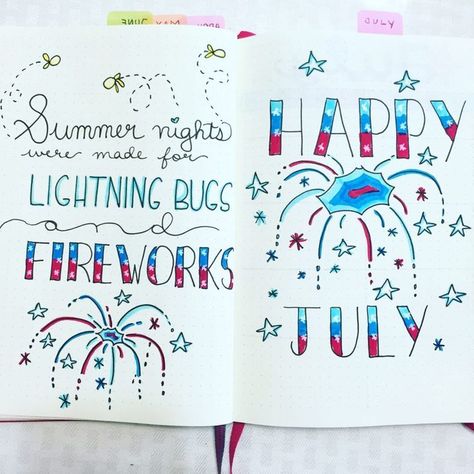 JUNE
MAY
JULY
Summer nights
were made for
LIGHTNING BUGS
and
FIREWORKS
HAPPY
JULY